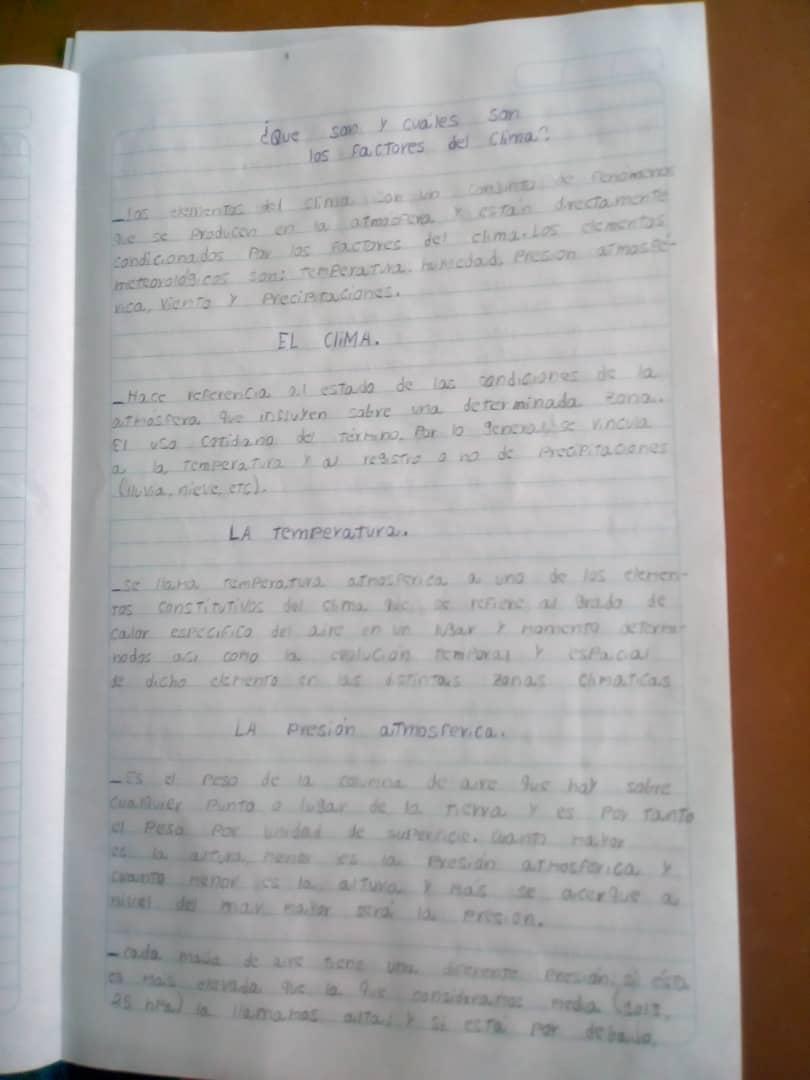 ¿Que son y cuales son
los factores del clima?
_los elementos del clima son un conjunto de fenómenos
que se producen en la atmosfera y están directamente
condicionados Por los factores del clima. Los elementos
meteorológicos son: Temperatura, humedad, Presion atmosfé-
rica, Viento y Precipitaciones.
EL CliMA.
_Hace referencia al estado de las condiciones de la
atmosfera que influyen sobre una determinada zona.
El uso cotidano del término, Por lo general, se vincula
a la temperatura y al registro o no de Precipitaciones
(lluvia, nieve, etc).
LA Temperatura.
_se llama temperatura atmosferica a uno de los elemen-
tos constitutivos del clima que se refiere al grado de
calor especifico del aire en un lugar y momento determi-
nados asi como la evolución temporal y espacial
de dicho elemento en las distintas zonas climaticas
LA Presión atmosferica.
_Es el Peso de la columna de aire que hay sobre
cualquier Punto o lugar de la tierra y es Por tanto
el Peso Por unidad de superficie. cuanto mayor
es la altura, menor es la Presión atmosferica y
cuanto menor es la altura y mas se acerque a
nivel del mar mayor será la Presion.
_cada masa de aire tiene una diferente Presión, si ésta
es mas elevada que la que consideramos media (1013,
25 hPa) la llamamos alta, y si esta por debajo,